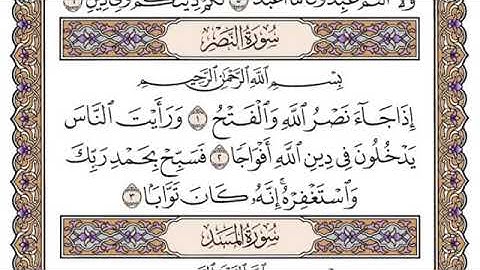 وَلَآ أَنتُمْ عَٰبِدُونَ مَآ أَعْبُدُ ٥ لَكُمْ دِينُكُمْ وَلِىَ دِينِ ٦
سُورَةُ النَّصْرِ
بِسْمِ ٱللَّهِ ٱلرَّحْمَٰنِ ٱلرَّحِيمِ
إِذَا جَآءَ نَصْرُ ٱللَّهِ وَٱلْفَتْحُ ١ وَرَأَيْتَ ٱلنَّاسَ
يَدْخُلُونَ فِى دِينِ ٱللَّهِ أَفْوَاجًا ٢ فَسَبِّحْ بِحَمْدِ رَبِّكَ
وَٱسْتَغْفِرْهُ إِنَّهُۥ كَانَ تَوَّابًۢا ٣
سُورَةُ المَسَدِ